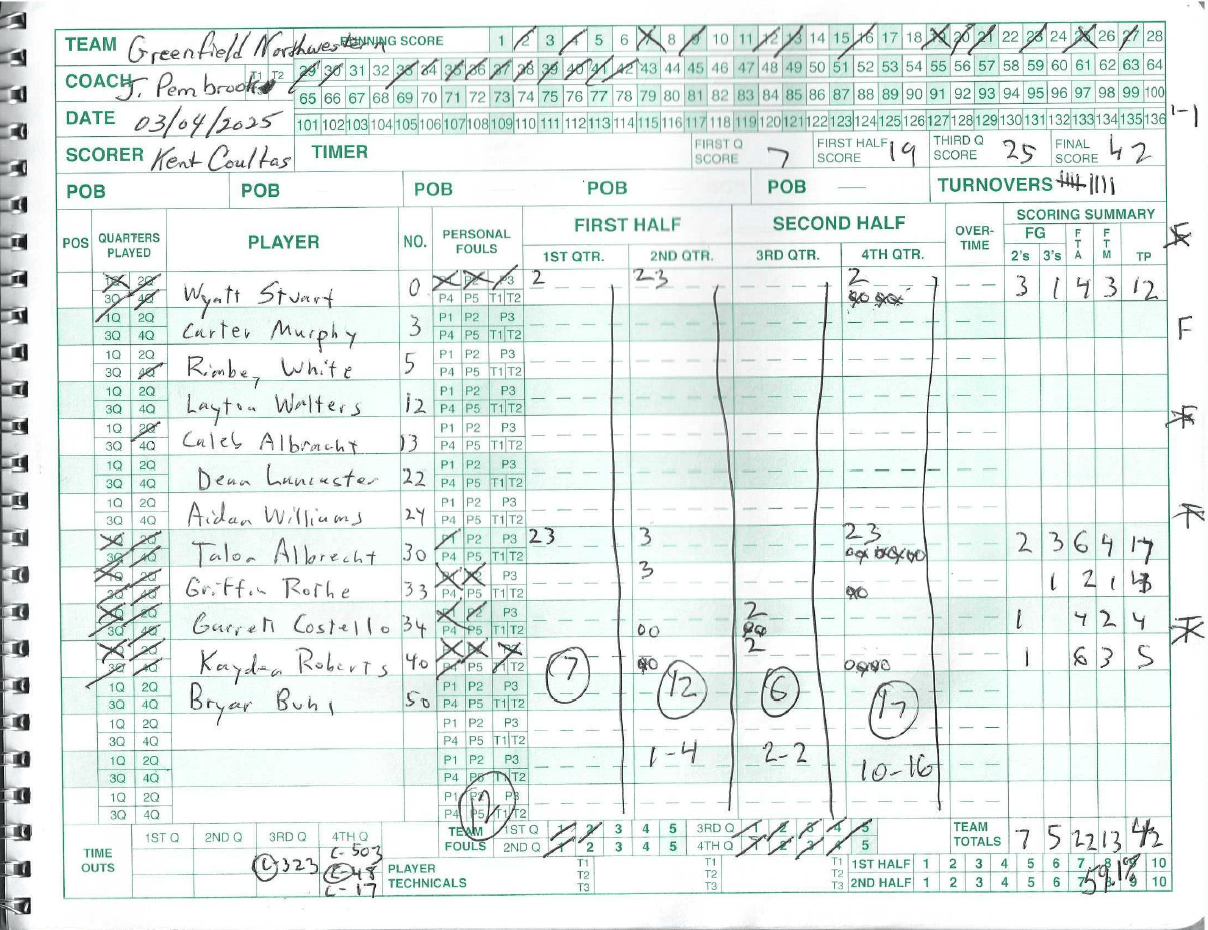 TEAM Greenfield Northwestern RUNNING SCORE 1 2 3 4 5 6 7 8 9 10 11 12 13 14 15 16 17 18 19 20 21 22 23 24 25 26 27 28
COACH J. Pembrook T1 T2 29 30 31 32 33 34 35 36 37 38 39 40 41 42 43 44 45 46 47 48 49 50 51 52 53 54 55 56 57 58 59 60 61 62 63 64
65 66 67 68 69 70 71 72 73 74 75 76 77 78 79 80 81 82 83 84 85 86 87 88 89 90 91 92 93 94 95 96 97 98 99 100
DATE 03/04/2025 101 102 103 104 105 106 107 108 109 110 111 112 113 114 115 116 117 118 119 120 121 122 123 124 125 126 127 128 129 130 131 132 133 134 135 136
1-1
SCORER Kent Coultas TIMER FIRST Q SCORE 7 FIRST HALF SCORE 19 THIRD Q SCORE 25 FINAL SCORE 42
POB POB POB POB POB TURNOVERS
POS QUARTERS PLAYED PLAYER NO. PERSONAL FOULS FIRST HALF SECOND HALF OVER-TIME SCORING SUMMARY
1ST QTR. 2ND QTR. 3RD QTR. 4TH QTR. FG 2's 3's FTA FTM TP
1Q 2Q 3Q 4Q Wyatt Stuart 0 P1 P2 P3 P4 P5 T1 T2 2 23 2 3 1 4 3 12
1Q 2Q 3Q 4Q Carter Murphy 3 P1 P2 P3 P4 P5 T1 T2 F
1Q 2Q 3Q 4Q Rimbey White 5 P1 P2 P3 P4 P5 T1 T2
1Q 2Q 3Q 4Q Layton Walters 12 P1 P2 P3 P4 P5 T1 T2
1Q 2Q 3Q 4Q Caleb Albracht 13 P1 P2 P3 P4 P5 T1 T2
1Q 2Q 3Q 4Q Dean Lancaster 22 P1 P2 P3 P4 P5 T1 T2
1Q 2Q 3Q 4Q Aidan Williams 24 P1 P2 P3 P4 P5 T1 T2
1Q 2Q 3Q 4Q Talon Albrecht 30 P1 P2 P3 P4 P5 T1 T2 23 3 23 2 3 6 4 17
1Q 2Q 3Q 4Q Griffin Rothe 33 P1 P2 P3 P4 P5 T1 T2 3 1 2 1
1Q 2Q 3Q 4Q Garrett Costello 34 P1 P2 P3 P4 P5 T1 T2 00 2 1 4 2 4
1Q 2Q 3Q 4Q Kayden Roberts 40 P1 P2 P3 P4 P5 T1 T2 2 1 6 3 5
1Q 2Q 3Q 4Q Bryar Buhl 50 P1 P2 P3 P4 P5 T1 T2 7 12 6 17
1Q 2Q 3Q 4Q P1 P2 P3 P4 P5 T1 T2
1Q 2Q 3Q 4Q P1 P2 P3 P4 P5 T1 T2 1-4 2-2 10-16
1Q 2Q 3Q 4Q P1 P2 P3 P4 P5 T1 T2 12
TIME OUTS 1ST Q 2ND Q 3RD Q 4TH Q TEAM FOULS 1ST Q 1 2 3 4 5 3RD Q 1 2 3 4 5 TEAM TOTALS 7 5 22 13 42
2ND Q 1 2 3 4 5 4TH Q 1 2 3 4 5
C 323 C-503 PLAYER TECHNICALS T1 T2 T3 T1 T2 T3 T1 T2 T3 1ST HALF 1 2 3 4 5 6 7 8 9 10
C-48 2ND HALF 1 2 3 4 5 6 7 8 9 10
C-17 59.1%